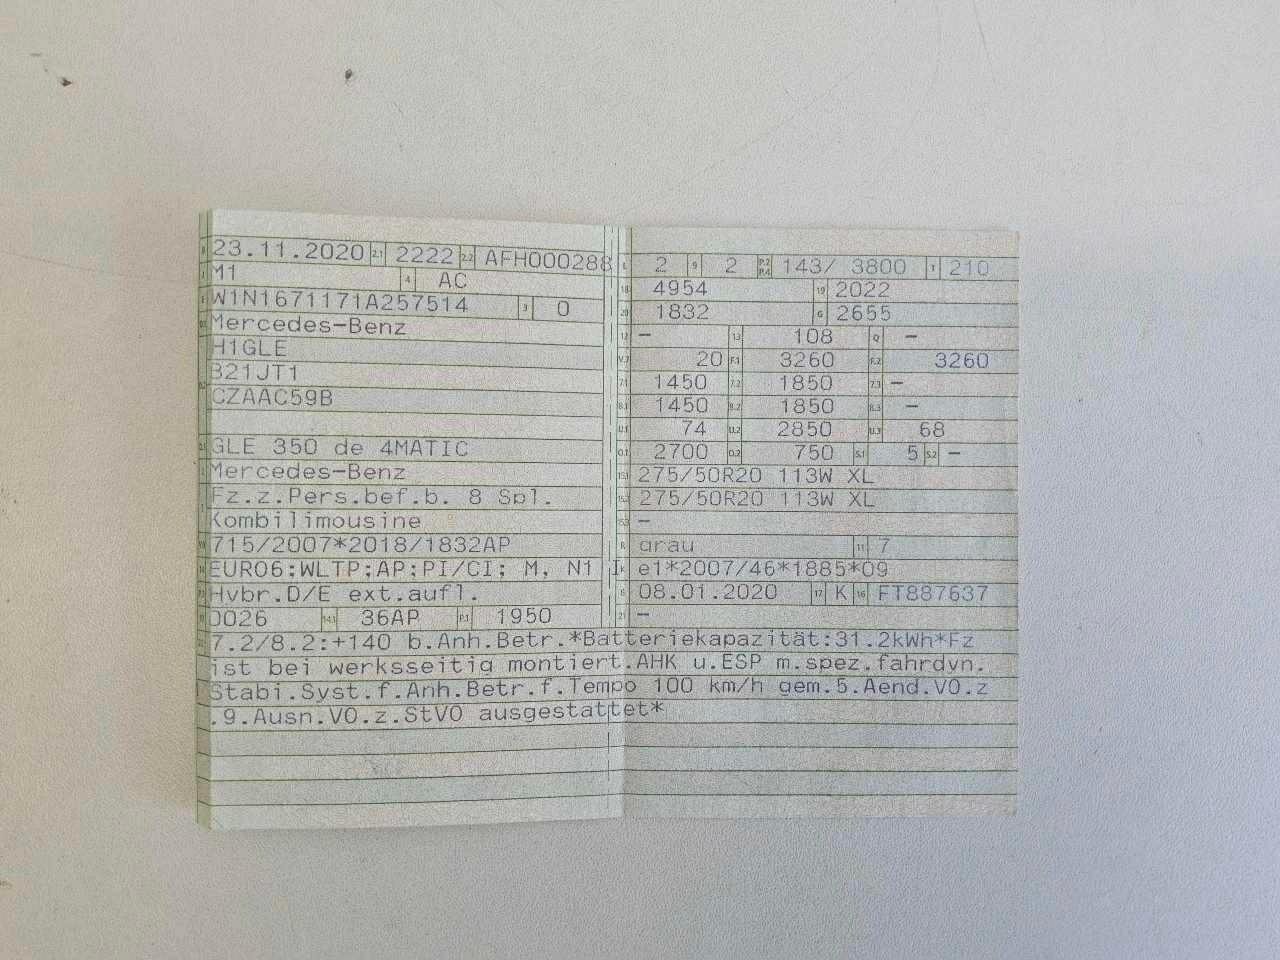 B 23.11.2020 2.1 2222 2.2 AFH000288
J M1 4 AC
E W1N1671171A257514 3 0
D.1 Mercedes-Benz
H1GLE
D.2 B21JT1
CZAAC59B
D.3 GLE 350 de 4MATIC
2 Mercedes-Benz
5 Fz.z.Pers.bef.b. 8 Spl.
Kombilimousine
V.9 715/2007*2018/1832AP
14 EURO6;WLTP;AP;PI/CI; M, N1 I
P.3 Hybr.D/E ext.aufl.
10 0026 14.1 36AP P.1 1950
L 2 9 2 P.2 P.4 143/ 3800 T 210
18 4954 19 2022
20 1832 G 2655
12 – 13 108 Q –
V.7 20 F.1 3260 F.2 3260
7.1 1450 7.2 1850 7.3 –
8.1 1450 8.2 1850 8.3 –
U.1 74 U.2 2850 U.3 68
O.1 2700 O.2 750 S.1 5 S.2 –
15.1 275/50R20 113W XL
15.2 275/50R20 113W XL
15.3 –
R grau 11 7
K e1*2007/46*1885*09
6 08.01.2020 17 K 16 FT887637
21 –
7.2/8.2:+140 b.Anh.Betr.*Batteriekapazität:31.2kWh*Fz
ist bei werksseitig montiert.AHK u.ESP m.spez.fahrdyn.
Stabi.Syst.f.Anh.Betr.f.Tempo 100 km/h gem.5.Aend.VO.z
.9.Ausn.VO.z.StVO ausgestattet*